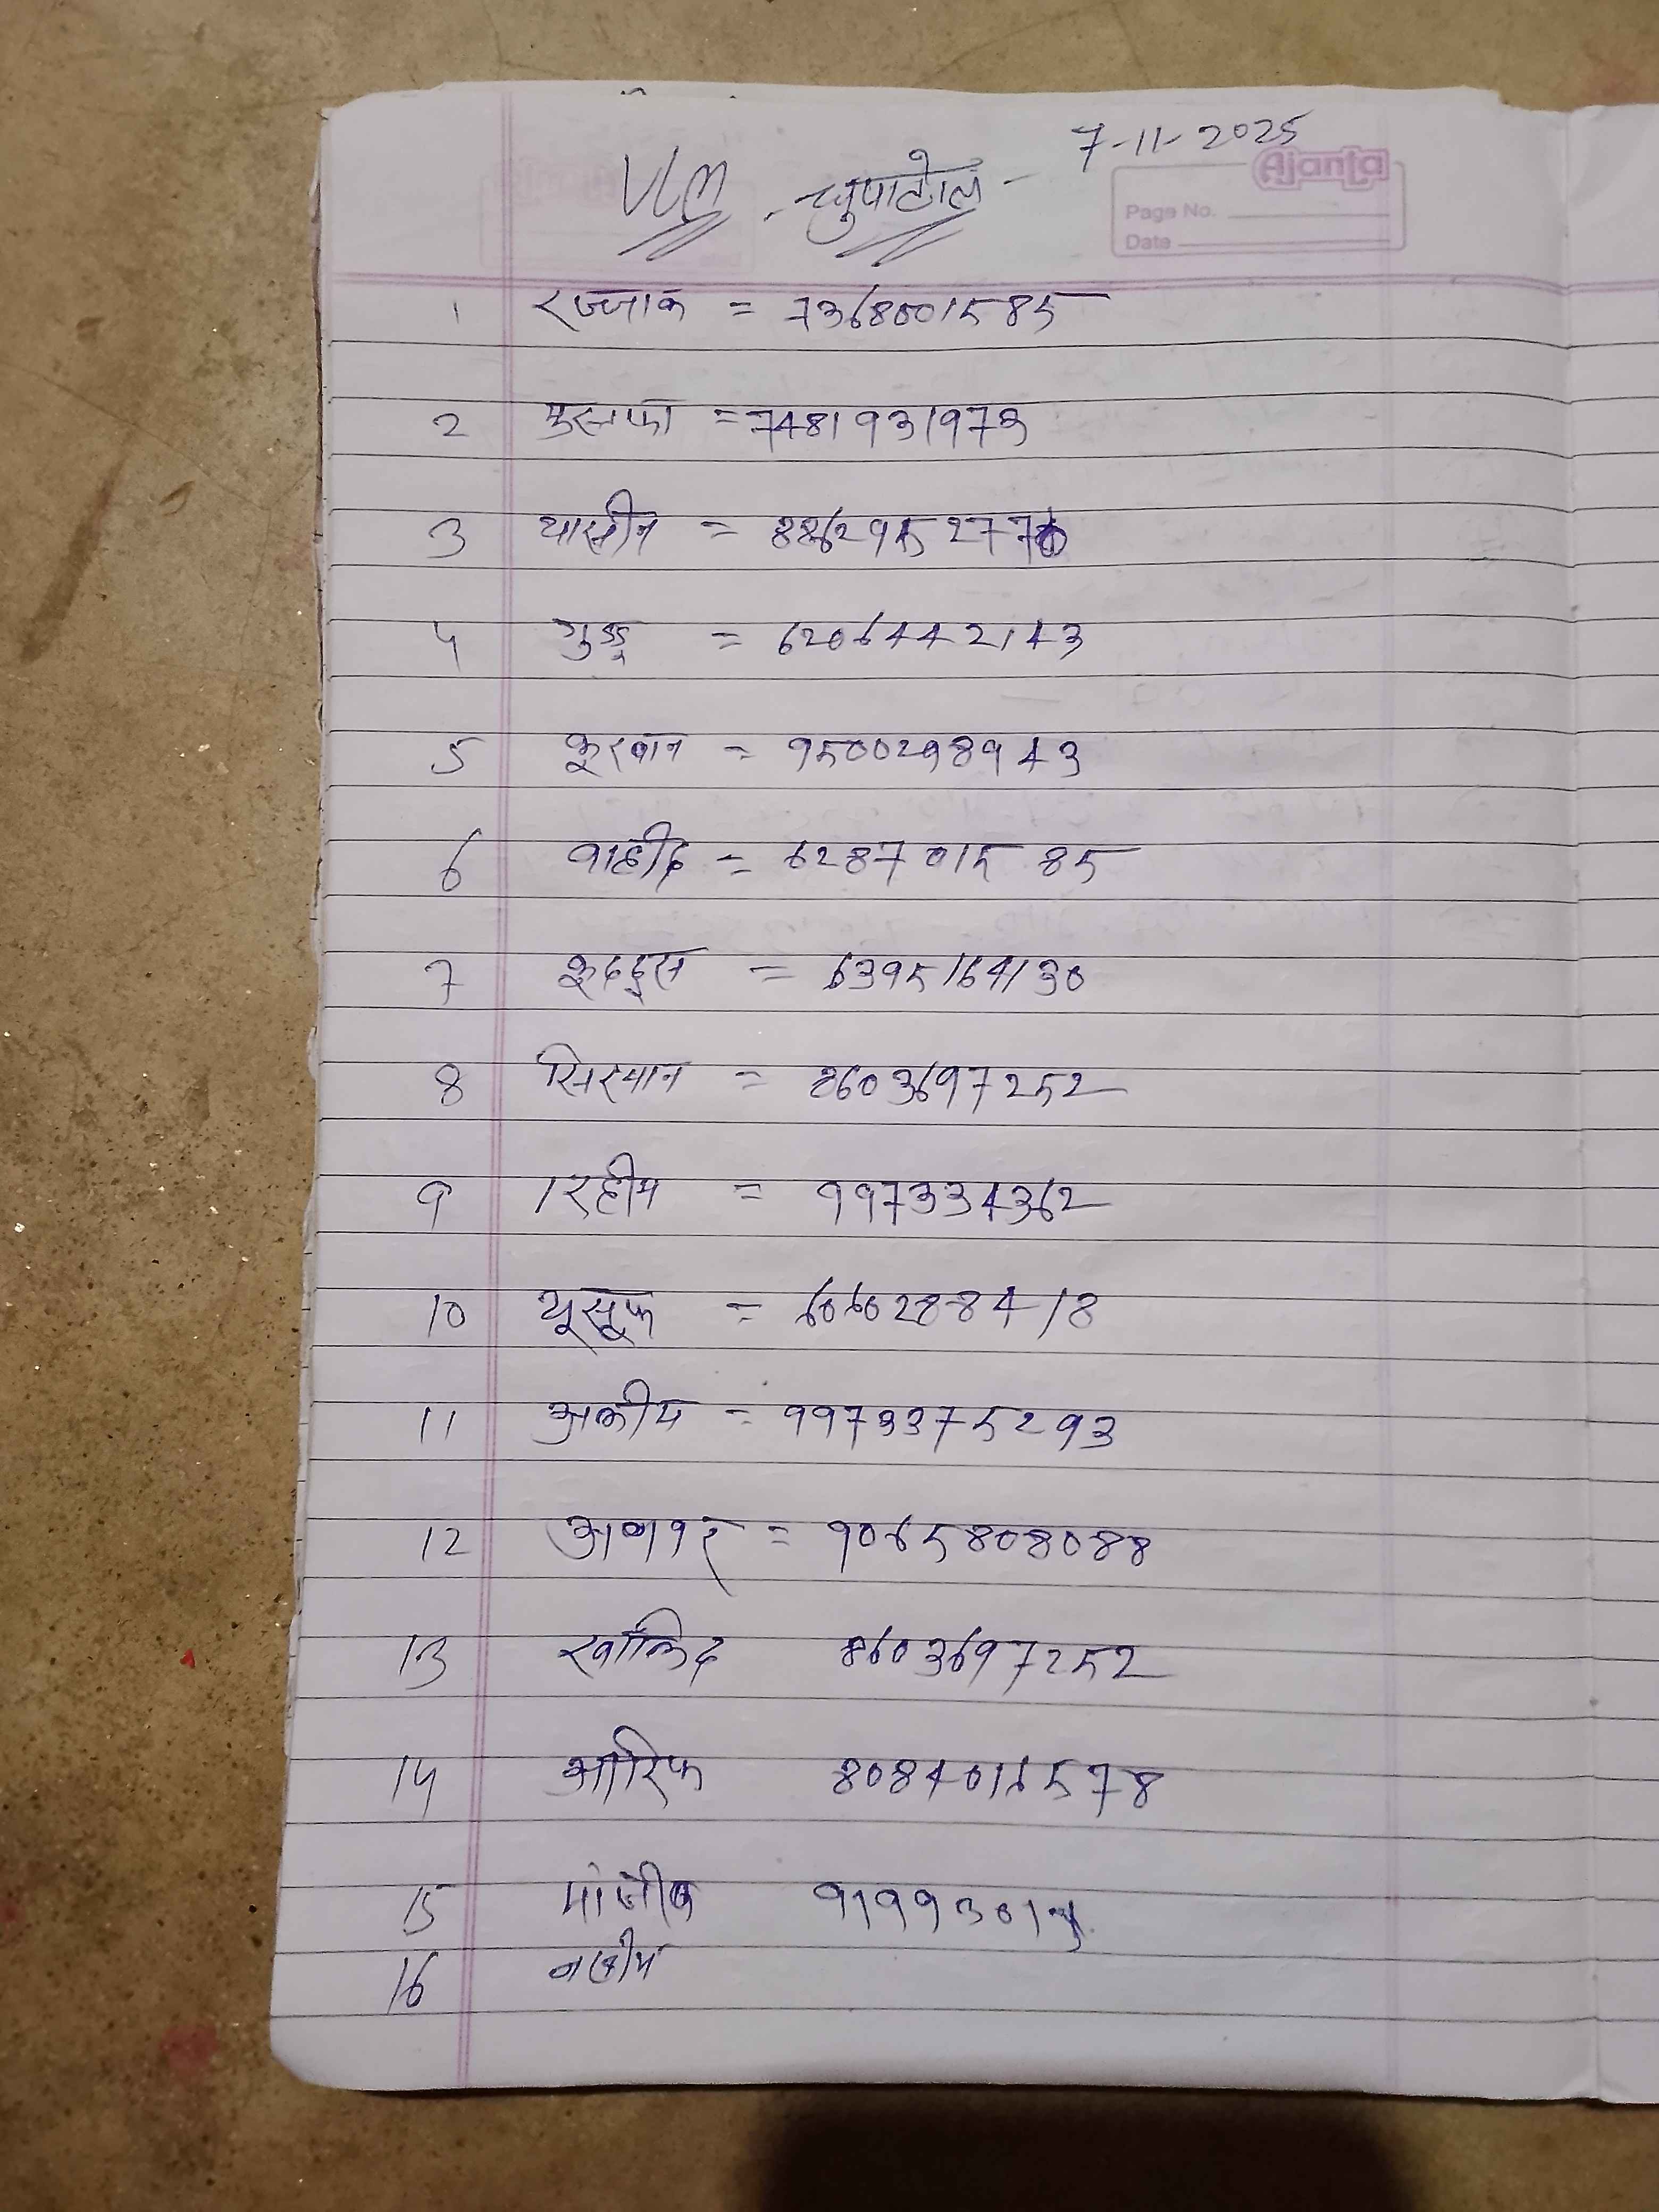 7-11-2025
Ajanta
Page No.
Date
1 रज्जाक = 7368001585
2 मुस्तफा = 7481931973
3 यासीन = 886295277
4 गुड्डू = 6206442143
5 कूरवान = 9500298943
6 वाहीद = 6287015 85
7 कूदद्दुस = 6395164130
8 सिरमान = 8603697252
9 रहीम = 997334362
10 यूसूफ = 6060288418
11 अकीम = 9973375293
12 = 9065808088
13 खालिद 8603697252
14 आरिफ 8084016578
15 9199301
16